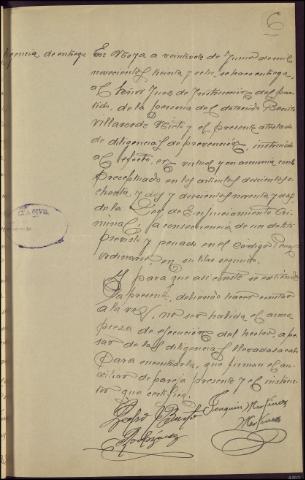 6
Diligencia de entrega
En Noya a veintiseis de Junio de mil
novecientos treinta y ocho, se hace entrega
al Señor Juez de Instrucción del par-
tido de la persona del detenido Benito
Villaverde y el presente atestado
de diligencias de prevención instruido
al efecto, en virtud y en armonía con lo
preceptuado en los artículos doscientos o-
chenta y dos y doscientos noventa y
de la Ley de Enjuiciamiento Cri-
minal, a consecuencia de un delito
previsto y penado en el Código Penal
ordinario en su libro segundo.
Y para que así conste se extiende
la presente, debiendo hacer constar
a la vez no ser habida el arma
pieza de ejecución del hecho, a pe-
sar de las diligencias llevadas a cabo
para encontrarla, que firman el au-
xiliar de pareja presente y el instruc-
tor que certifica.
Pedro Benito Joaquín Martínez
Rodríguez Martínez